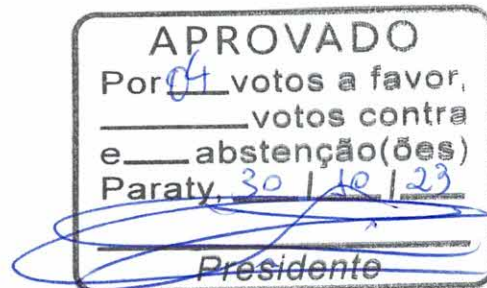 APROVADO
Por 04 votos a favor,
____ votos contra
e ____ abstenção(ões)
Paraty, 30 / 10 / 23
Presidente